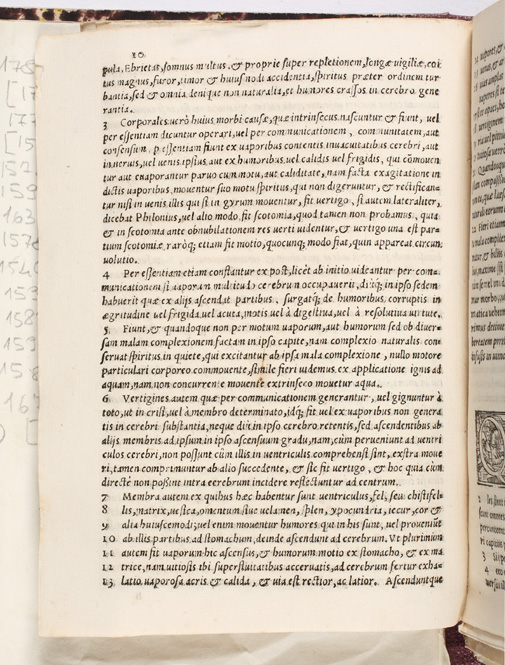 10
pula, Ebrietas, somnus multus, & proprie super repletionem, longæ uigiliæ, coi
tus magnus, furor, timor & huiusmodi accidentia, spiritus præter ordinem tur
bantia, sed & omnia denique non naturalia, et humores crassos in cerebro gene
rantia.
3 Corporales uerò huius morbi causæ, quæ intrinsecus nascuntur & fiunt, uel
per essentiam dicuntur operari, uel per communicationem, communitatem, aut
consensum. p essentiam fiunt ex uaporibus contentis in uacuitatibus cerebri, aut
in neruis, uel uenis ipsius, aut ex humoribus uel calidis uel frigidis, qui cōmouen
tur aut euaporantur paruo cum motu, aut caliditate, nam facta exagitatione in
dictis uaporibus, mouentur suo motu spiritus, qui non digeruntur, & rectifican
tur nisi in uenis. illis qui si in gyrum mouentur, fit uertigo, si autem lateraliter,
dicebat Philonius, uel alio modo, fit scotomia, quod tamen non probamus, quia
& in scotomia ante obnubilationem res uerti uidentur, & uertigo una est par=
tium scotomiæ, raròq; etiam fit motio, quocunq; modo fiat, quin appareat circum
uolutio.
4 Per essentiam etiam constantur ex post, licèt ab initio uideantur per com=
municationem si uaporum multitudo cerebrum occupauerit, diuq; in ipso sedem
habuerit quæ ex alijs ascendat partibus, surgatq; de humoribus corruptis in
ægritudine uel frigida, uel acuta, motis uel à digestiua, uel à resolutiua uirtute.
5 Fiunt, & quandoque non per motum uaporum, aut humorum sed ob diuer=
sam malam complexionem factam in ipso capite, nam complexio naturalis con=
seruat spiritus in quiete, qui excitantur ab ipsa mala complexione, nullo motore
particulari corporeo commouente, simile fieri uidemus ex applicatione ignis ad
aquam, nam non concurrente mouente extrinseco mouetur aqua.
6 Vertigines autem quæ per communicationem generantur, uel gignuntur à
toto, ut in crisi, uel à membro determinato, idq; fit uel ex uaporibus non genera
tis in cerebri substantia, neque diu in ipso cerebro retentis, sed ascendentibus ab
alijs membris ad ipsum in ipso ascensuum gradu, nam cùm perueniunt ad uentri
culos cerebri, non possunt cùm illis in uentriculis comprehensi sint, extra moue
ri, tamen comprimuntur ab alio succedente, & sic fit uertigo, & hoc quia cùm
directè non possint intra cerebrum incidere reflectuntur ad centrum.
7 Membra autem ex quibus hæc habentur sunt uentriculus, fel, seu chistifel=
8 lis, matrix, uesica, omentum siue uelamen, splen, ypocundria, iecur, cor &
9 alia huiuscemodi; uel enim mouentur humores qui in his sunt, uel proueniūt
10 ab illis partibus ad stomachum, deinde ascendunt ad cerebrum. Vt plurimùm
11 autem fit uaporum hic ascensus, & humorum motio ex stomacho, & ex ma
12 trice, nam uitiosis ibi superfluitatibus aceruatis, ad cerebrum fertur exha=
13 latio uaporosa acris & calida, & uia est rectior, ac latior. Ascenduntque